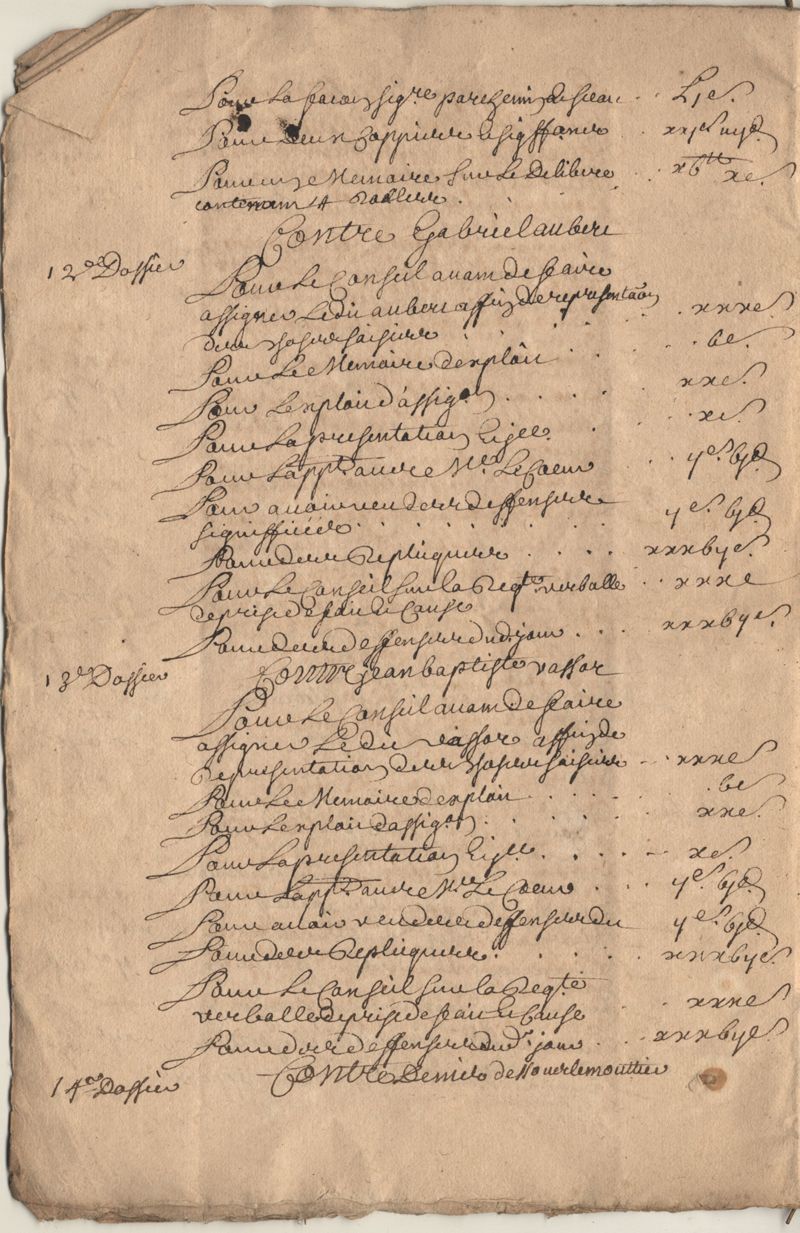 Pour La facon sigre parchemin & sceau . . L s.
Pour deux coppies & sigffions . xxjs
Pour un Memoire Sur Le Delibere . . xbtt xs.
contenant 14 Rolles .
Contre Gabriel aubert
12e Dossier
Pour Le Conseil avant de faire
assigner Ledit aubert affin de representaon
des choses saisies . . . . xxxs.
Pour Le Memoire de xploit . . . bs.
Pour Lexploit d'assigon . . . . . xxs.
Pour La presentation . xs.
Pour Lappt audt Me Le Coeur . . bjd
Pour avoir veu des deffenses
signiffiées . . . . . . bjd
Pour des Repliques . . . . xxxbjs.
Pour Le Conseil sur la Reqte verballe . . xxxs
de prise de fait & Cause
Pour des deffenses dud jour . . . xxxbjs.
13e Dossier
Contre Jean baptiste vassor
Pour Le Conseil avant de faire
assigner Ledit vassor affin de
Representation des choses saisies . . xxxs
Pour Le Memoire de xploit . . . . bs
Pour Lexploit d'assigon . . . . . xxs.
Pour La presentation . . . . xs.
Pour Lappt audt Me Le Coeur . . . bjd
Pour avoir veu des deffenses du bjd
Pour des Repliques . . . . xxxbjs.
Pour Le Conseil sur la Reqte
verballe de prise de fait & Cause . . xxxs
Pour des deffenses dud jour . . xxxbjs
14e Dossier
Contre Denis